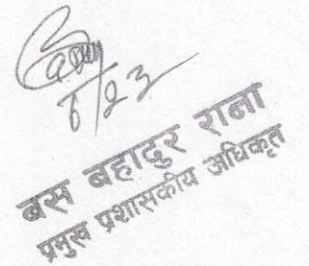 ६/२३
बस बहादुर राना
प्रमुख प्रशासकीय अधिकृत